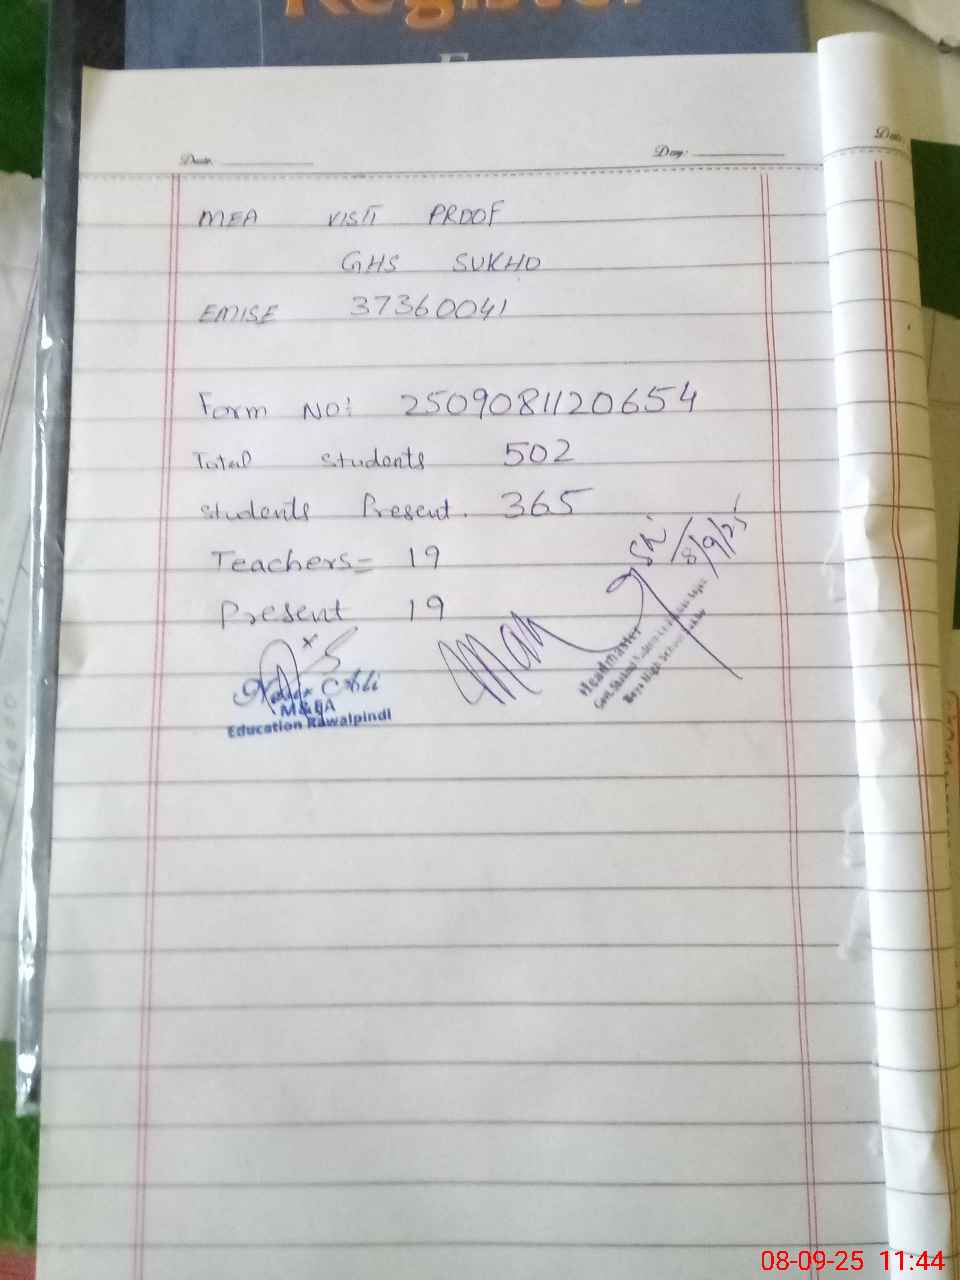 Register
Date.
Day:
Date.
MEA VISIT PROOF
GHS SUKHO
EMISE 37360041
Form NO: 2509081120654
Total students 502
students Present. 365
Teachers = 19
Present 19
8/9/25
Ali
M&EA
Education Rawalpindi
Headmaster
Boys High School
08-09-25 11:44